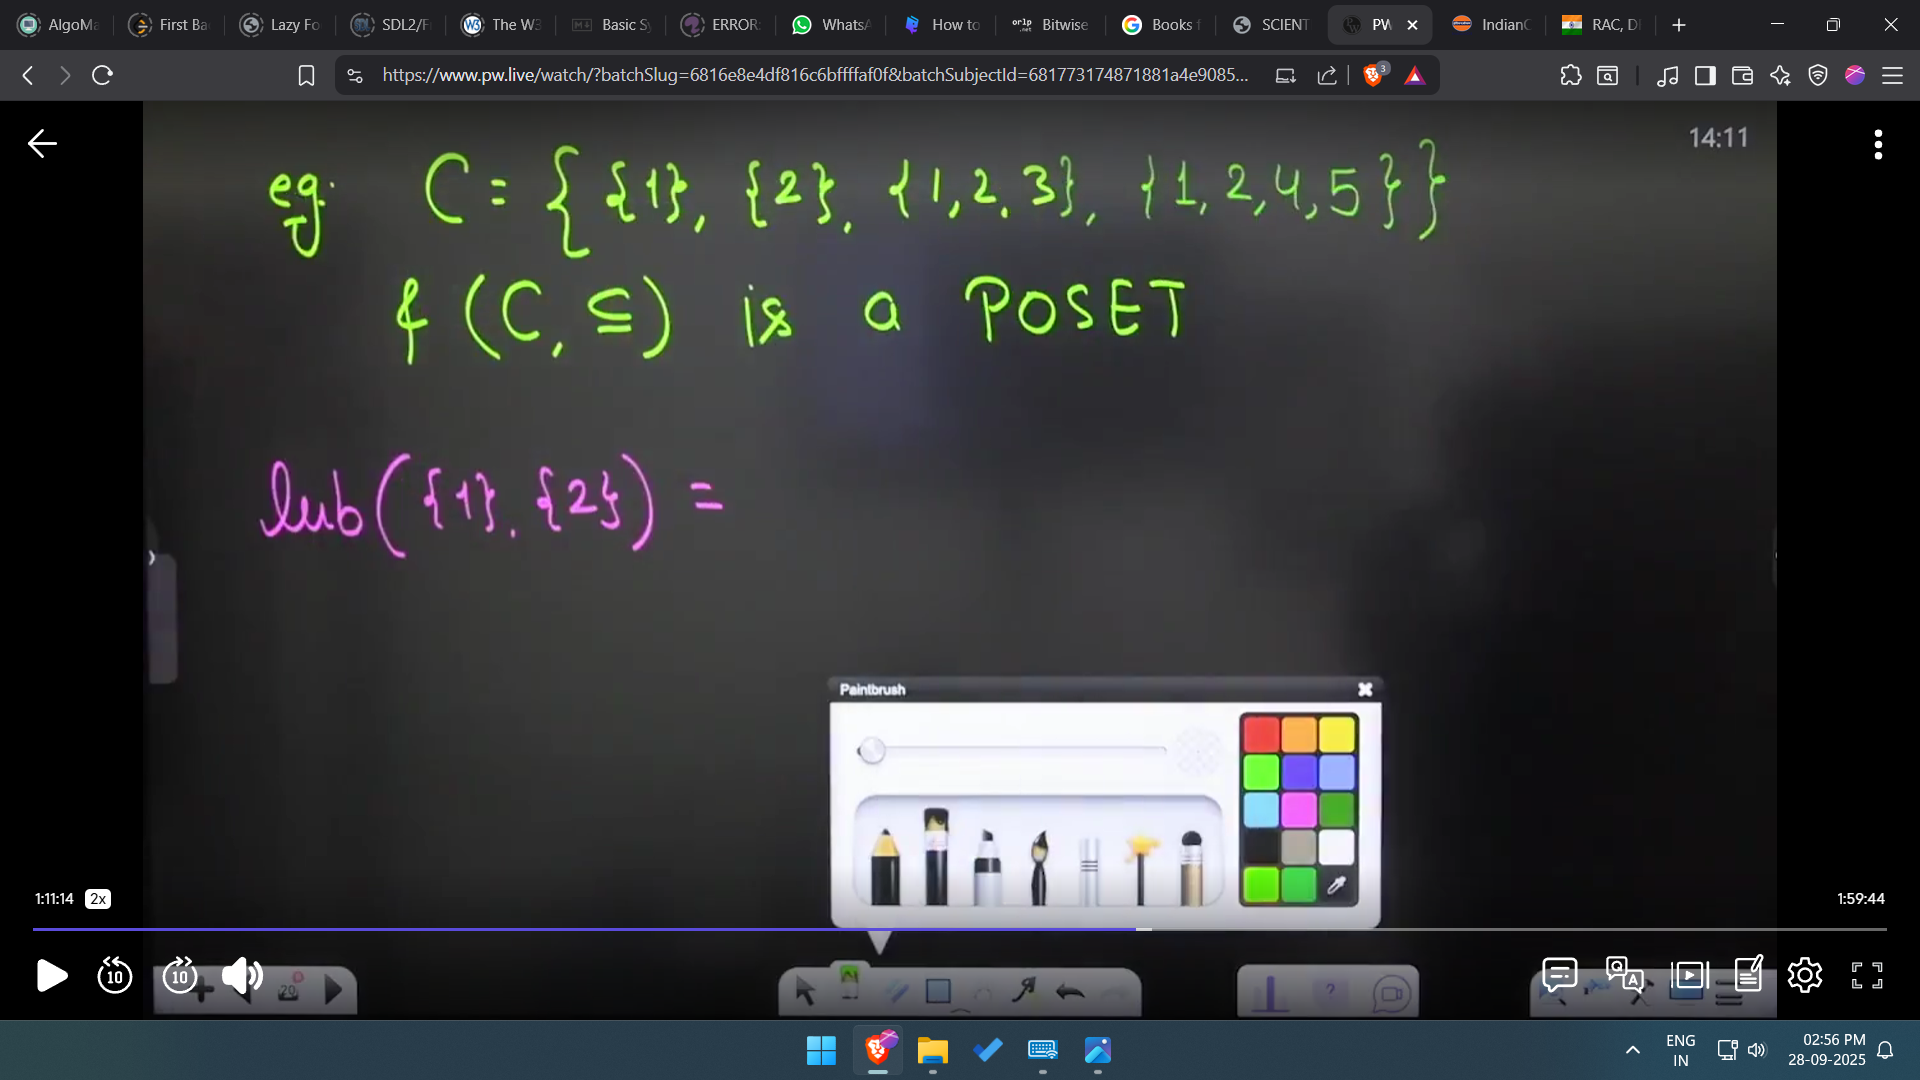 AlgoMa
First Ba
Lazy Fo
SDL2/F
The W3
Basic Sy
ERROR:
WhatsA
How to
Bitwise
Books f
SCIENT
PW
IndianO
RAC, D
https://www.pw.live/watch/?batchSlug=6816e8e4df816c6bffffaf0f&batchSubjectId=681773174871881a4e9085...
3
14:11
eg: C = { {1}, {2}, {1,2,3}, {1,2,4,5} }
& (C, ⊆) is a POSET
lub({1}, {2}) =
Paintbrush
1:11:14
2x
1:59:44
10
10
20
?
ENG
IN
02:56 PM
28-09-2025